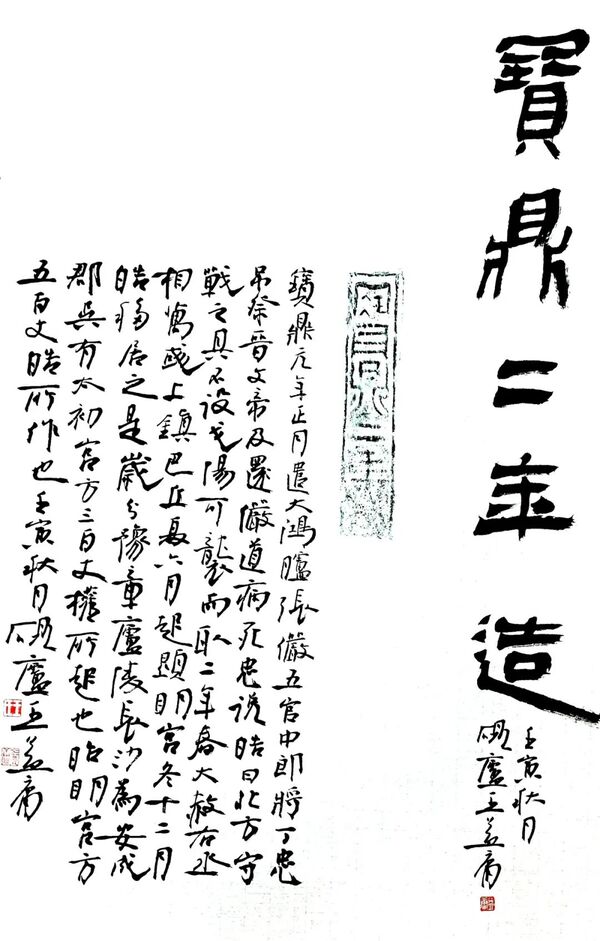 寶鼎二年造
壬寅秋月
硯廬王益庸
寶鼎元年正月遣大鴻臚張儼五官中郎將丁忠
吊祭晉文帝及還儼道病死忠說皓曰北方守
戰之具不設弋陽可襲而取二年春大赦右丞
相萬彧上鎮巴丘夏六月起顯明宮冬十二月
皓移居之是歲分豫章廬陵長沙為安成
郡吳有太初宮方三百丈權所起也昭明宮方
五百丈皓所作也壬寅秋月硯廬王益庸